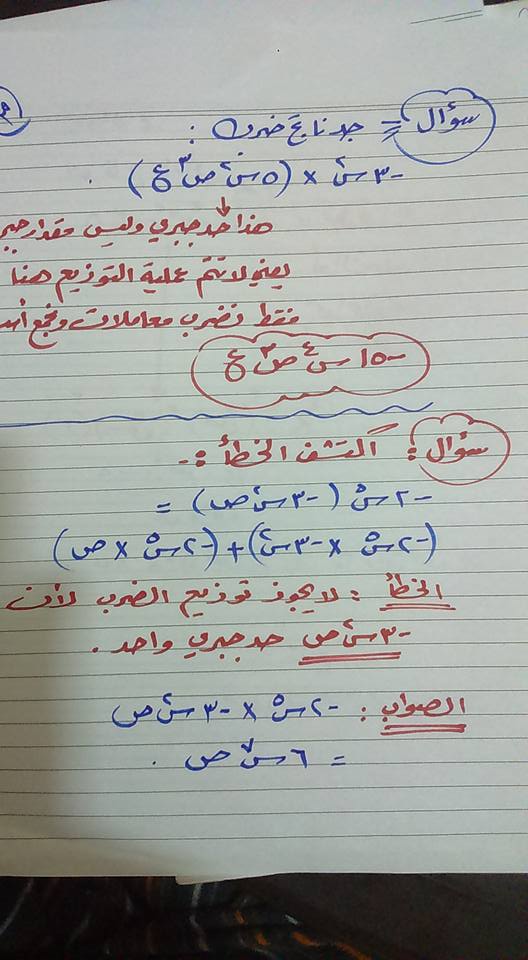 سؤال = جد ناتج ضرب :
-٣س² × (٥س² ص³ ع)
هذا حد جبري وليس مقدار
يعني لا تتم عملية التوزيع هنا
فقط نضرب معاملات ونجمع
-١٥ س⁴ ص³ ع
سؤال : اكتشف الخطأ :-
-٢س⁵ (-٣س² ص) =
(-٢س⁵ × -٣س²) + (-٢س⁵ × ص)
الخطأ : لا يجوز توزيع الضرب لأن
-٣س² ص حد جبري واحد .
الصواب : -٢س⁵ × -٣س² ص
= ٦س⁷ ص .